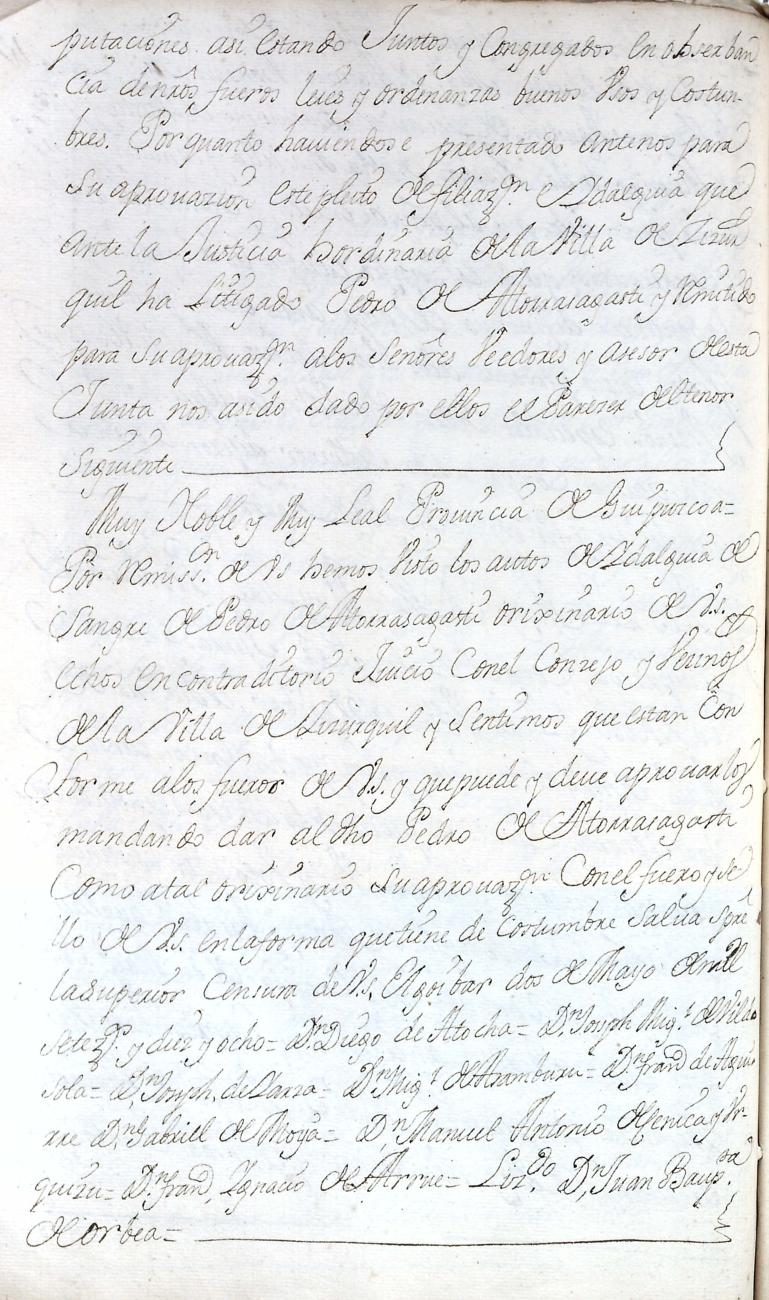 putaciones asi estando Juntos y Congregados en obserban
cia de nros fueros leies y ordenanzas buenos Vsos y Costun-
bres. Por quanto haviendose presentado antenos para
su aprouazion este pleito de filiazn. e Ydalguia que
ante la Justicia hordinaria de la Villa de Lizur
quil ha Litigado Pedro de Atorrasagasti y Remitido
para su aprouazn. alos Señores Veedores y asesor de esta
Junta nos asido dado por ellos el Parezer del tenor
Siguiente
Muy Noble y Muy Leal Prouincia de Guipuzcoa=
Por Remissn. de Vs hemos Visto los autos de Ydalguia de
Sangre de Pedro de Atorrasagasti orixinario de V.s.
echos en contraditorio Juicio Conel Conzejo y Vezinos
de la Villa de Lizurquil y Sentimos que estan Con
forme alos fueros de V.s. y que puede y deue aprouarlos
mandando dar al dho Pedro de Atorrasagasti
Como atal orixinario su aprouazn Conel fuero y se
llo de V.s. enla forma que tiene de costumbre salua spre
la superior Censura de V.s. Elgoibar dos de Mayo de mill
setezs. y diez y ocho= Dn. Diego de Atocha= Dn. Joseph Migl. de Vildo
sola= Dn. Joseph de Larza= Dn Migl. de Aramburu= Dn. Franco de Aguir
rre Dn. Gabriel de Moya= Dn. Manuel Antonio de Yenica y Vr-
quizu= Dn. Franco Ygnacio de Arrue= Lizdo. Dn. Juan Baupta.
de Orbea=